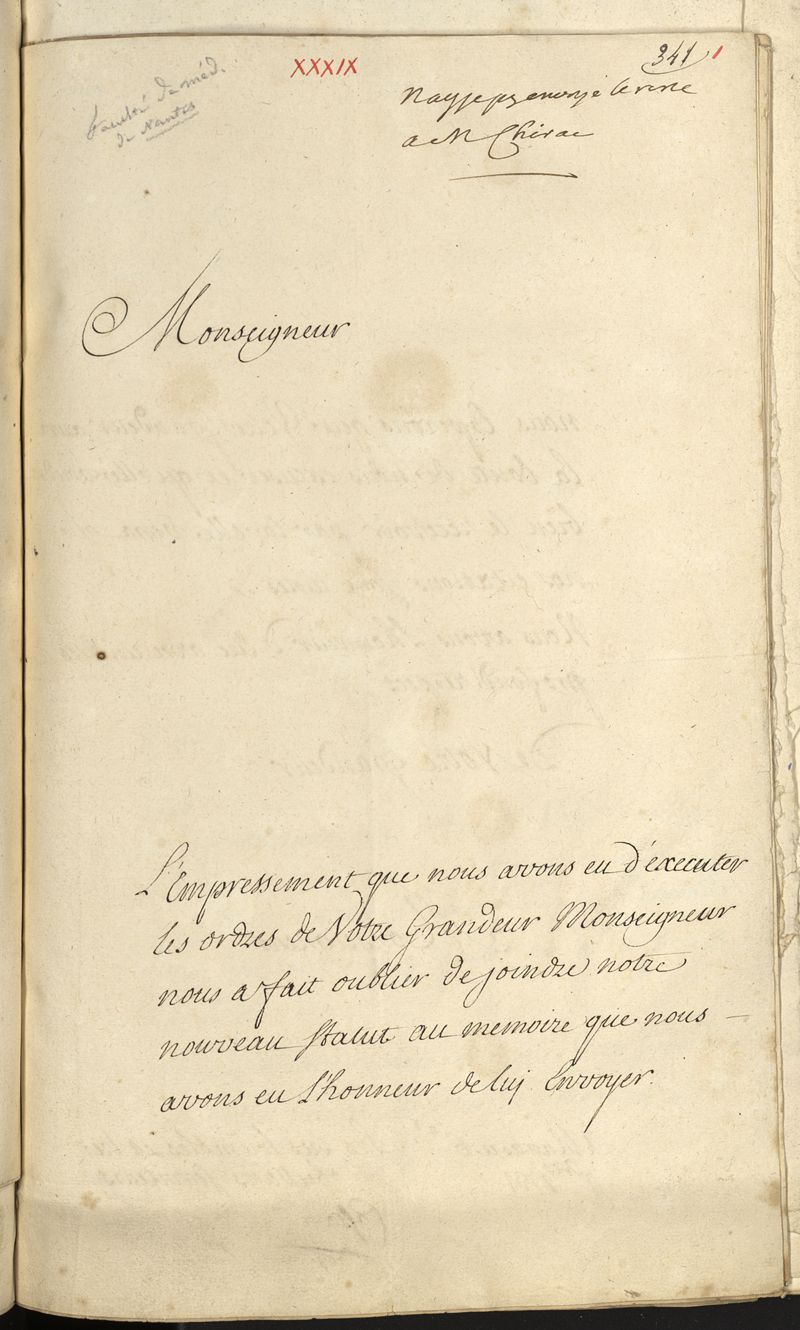 XXXIX
341
Faculté de méd.
de Nantes
N'ay je pas envoyé le reste
a M Chirac
Monseigneur
L'Empressement que nous avons eu d'executer
les ordres de Votre Grandeur Monseigneur
nous a fait oublier de joindre notre
nouveau Statut au memoire que nous
avons eu L'honneur de luy Envoyer.